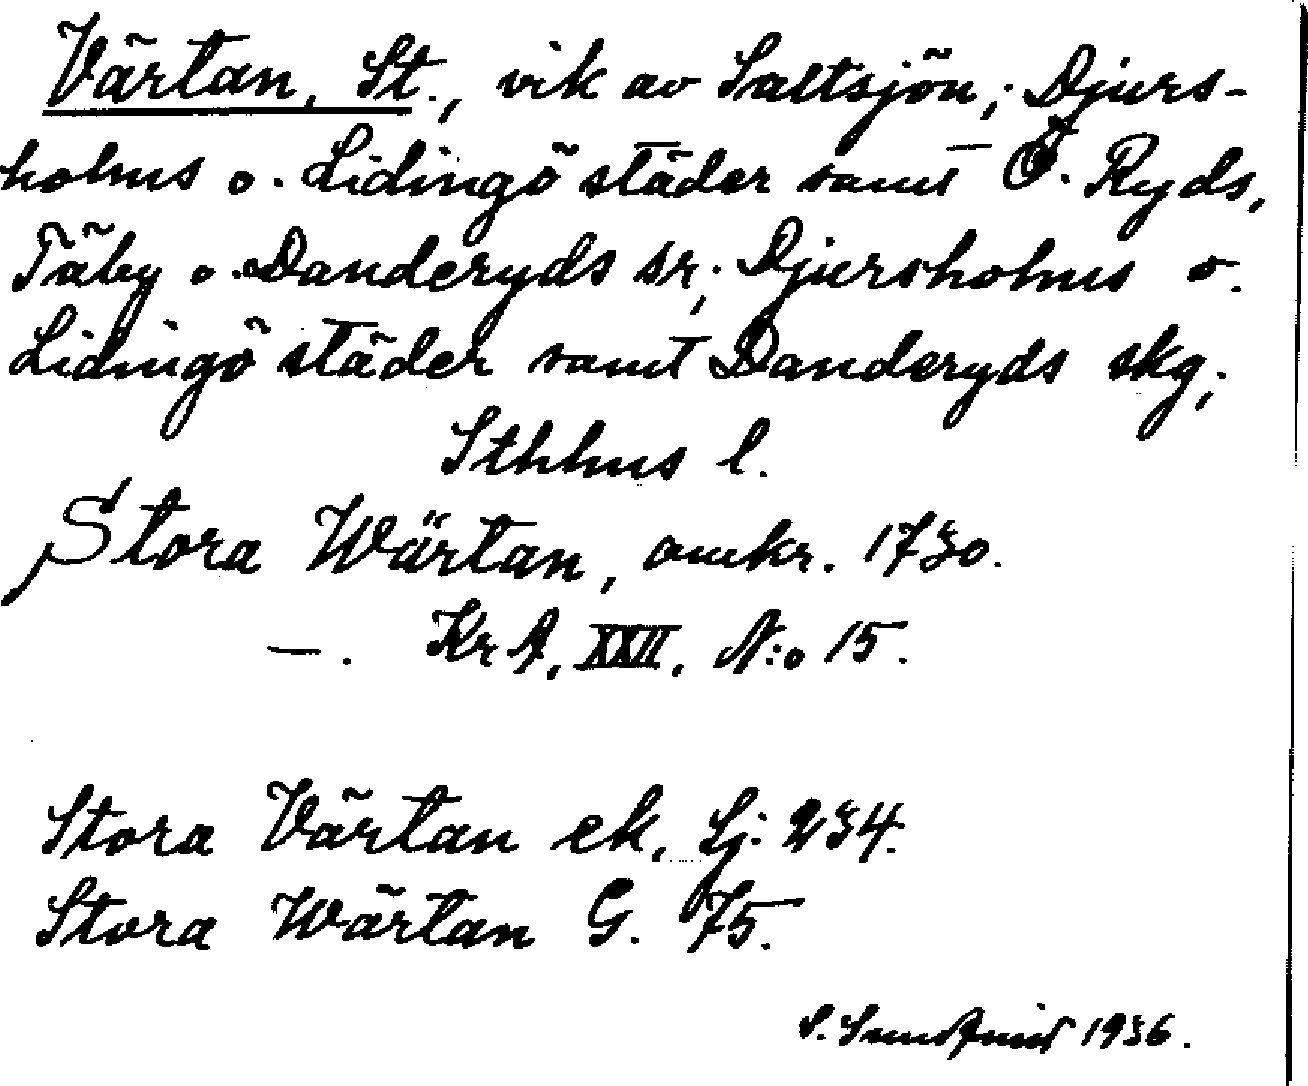 Värtan, St., vik av Saltsjön; Djurs-
holms o. Lidingö städer samt Ö. Ryds,
Täby o. Danderyds sr; Djursholms o.
Lidingö städer samt Danderyds skg;
Sthlms l.
Stora Wärtan, omkr. 1730.
—. KrA, XXII. N:o 15.
Stora Värtan ek, Lj: 234.
Stora Wärtan G. 75.
S. Sundqvist 1936.